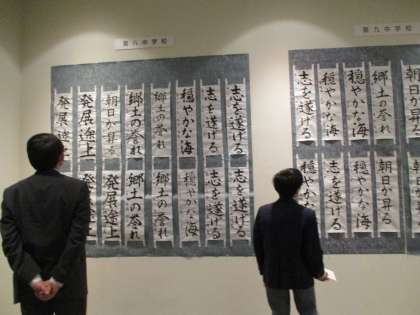 第八中学校
志を遂げる
志を遂げる
穏やかな海
郷土の誉れ
郷土の誉れ
朝日が昇る
発展途上
発展途
志を遂げる
志を遂げる
穏やかな海
郷土の誉れ
郷土の誉れ
発展途上
発展途上
第九中学校
朝日が昇
郷土の誉れ
穏やかな海
穏やかな海
志を遂げる
朝日が昇る
穏やかな海
穏やかな海
穏やかな